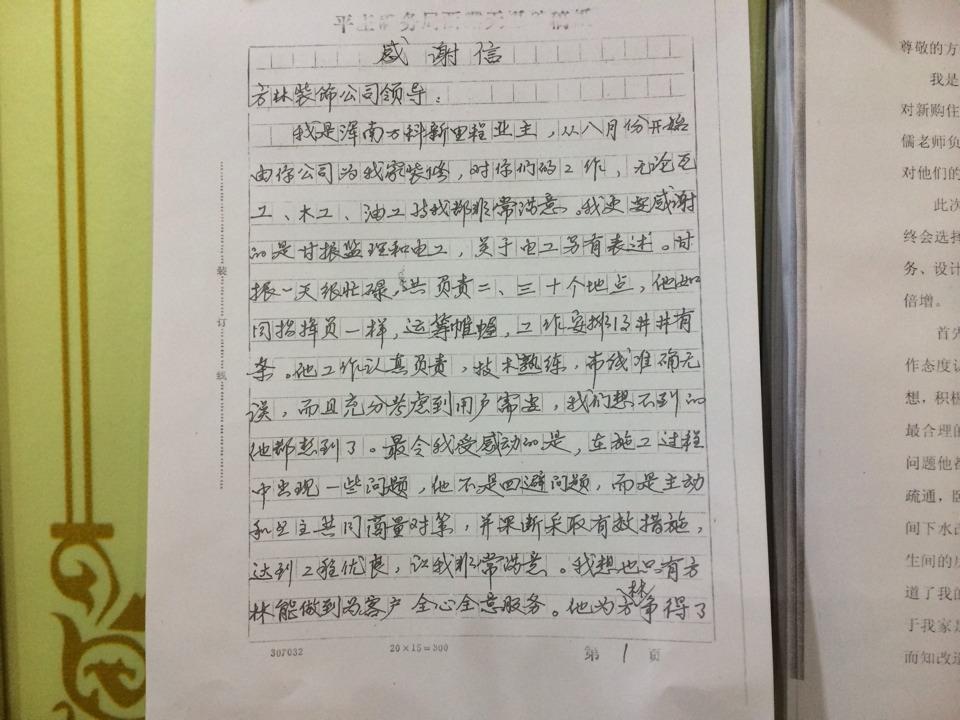 感谢信
方林装饰公司领导：
我是浑南万科新里程业主，从八月份开始
由你公司为我家装修，对你们的工作，无论瓦
工、木工、油工等我都非常满意。我更要感谢
的是甘振监理和电工，关于电工另有表述。甘
振一天很忙碌，共负责二、三十个地点，他如
同指挥员一样，运筹帷幄，工作安排得井井有
条。他工作认真负责，技术熟练，布线准确无
误，而且充分考虑到用户需要，我们想不到的
他都想到了。最令我受感动的是，在施工过程
中出现一些问题，他不是回避问题，而是主动
和业主共同商量对策，并果断采取有效措施，
达到工程优良，让我非常满意。我想也只有方
林能做到为客户全心全意服务。他为方林争得了
307032
20×15=300
第 1 页
装
订
线
尊敬的方
我是
对新购住
儒老师负
对他们的
此次
终会选择
务、设计
倍增。
首先
作态度认
想，积极
最合理的
问题他都
疏通，
间下水
生间的
道了我的
于我家是
而知改造